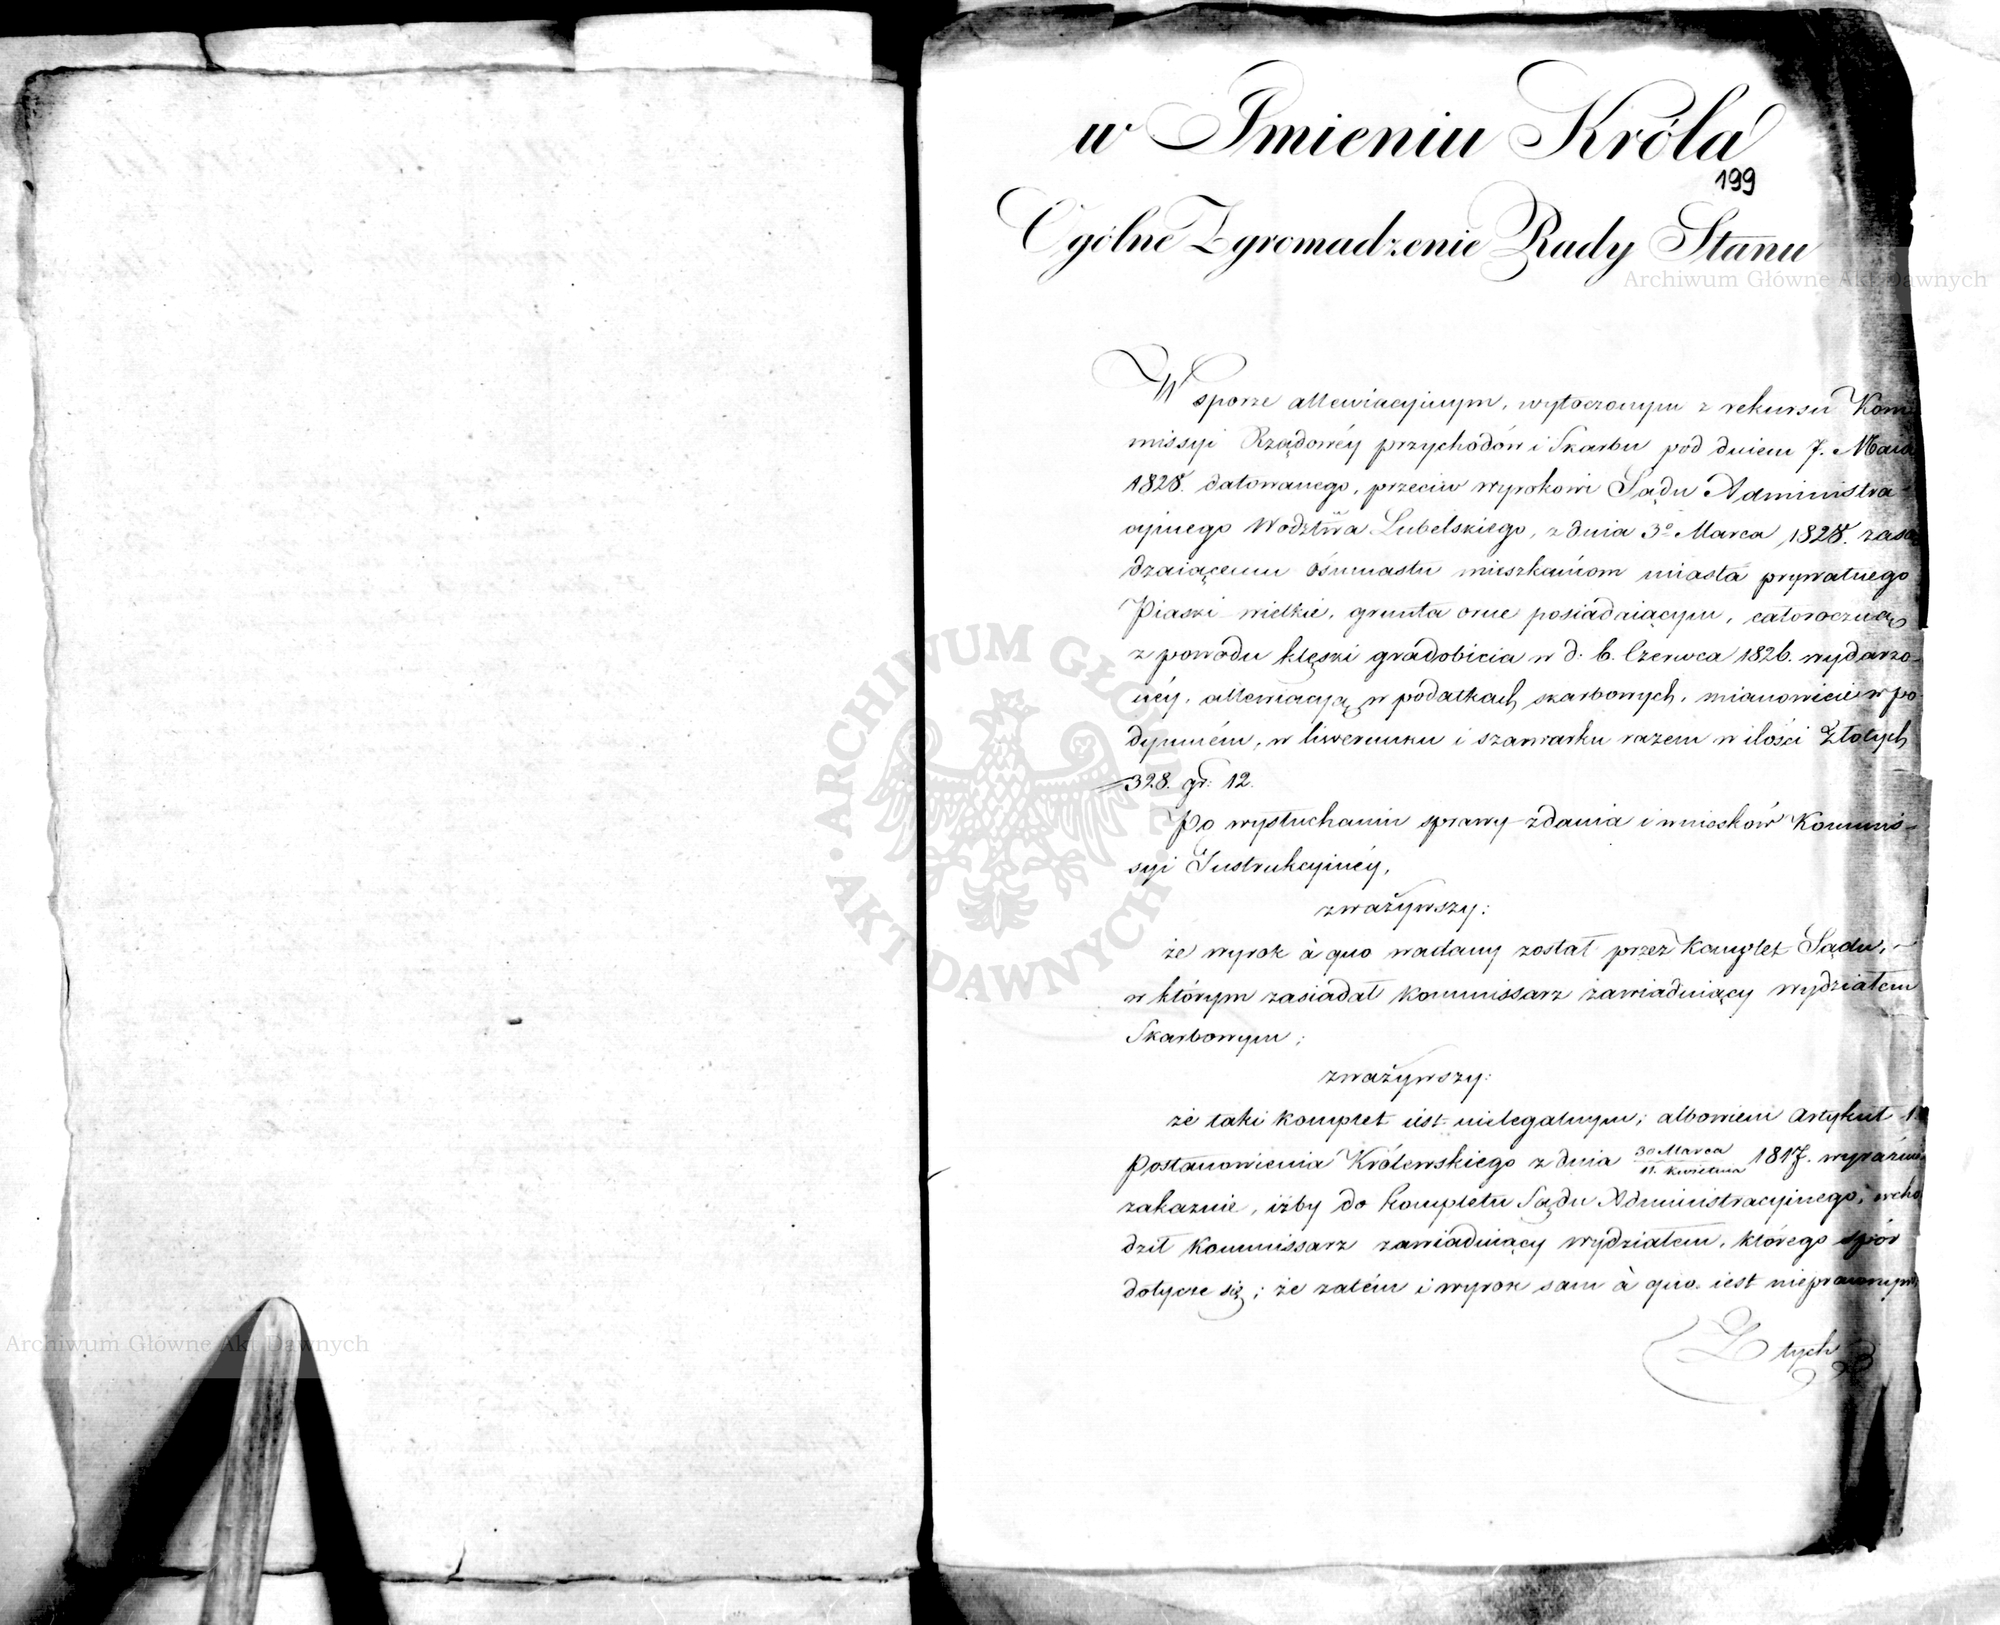 w Imieniu Króla
199
Ogólne Zgromadzenie Rady Stanu
W sporze allewiacyinym, wytoczonym z rekursu Kom
missyi Rządowéy przychodów i Skarbu pod dniem 7. Maia
1828. datowanego, przeciw wyrokowi Sądu Administra
cyinego Wodztwa Lubelskiego, z dnia 3º Marca 1828. zasą
dzaiącemu ośmnastu mieszkańcom miasta prywatnego
Piaski wielkie, grunta orne posiadaiącym, całoroczną
z powodu klęski gradobicia w d: 6. Czerwca 1826. wydarzo-
néy, allewiacyą w podatkach skarbowych, mianowicie w po-
dymném, w liwerunku i szarwarku razem w ilości Złotych
328. gr: 12.
Po wysłuchaniu sprawy zdania i wniosków Kommis-
syi Instrukcyinéy,
zważywszy:
że wyrok à quo wydany został przez komplet Sądu,
w którym zasiadał Kommissarz zawiaduiący wydziałem
Skarbowym;
zważywszy:
że taki komplet iest nielegalnym; albowiem Artykuł
Postanowienia Królewskiego z dnia 30 Marca / 11. Kwietnia 1817. wyraźnie
zakazuie, iżby do kompletu Sądu Administracyinego, wcho
dził Kommissarz zawiaduiący wydziałem, którego spór
dotycze się; że zatém i wyrok sam à quo iest nieprawnym;
Z tych
Archiwum Główne Akt Dawnych
Archiwum Główne Akt Dawnych
ARCHIWUM GŁÓWNE AKT DAWNYCH